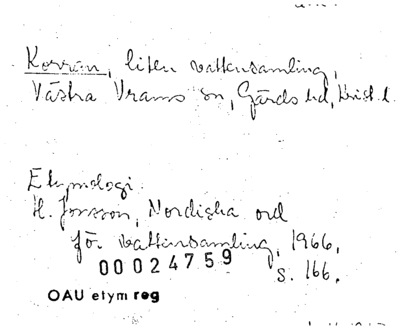 Korran, liten vattensamling,
Västra Vrams sn, Gärds hd, Krist. l.
Etymologi:
H. Jonsson, Nordiska ord
för vattensamling, 1966,
s. 166.
00024759
OAU etym reg